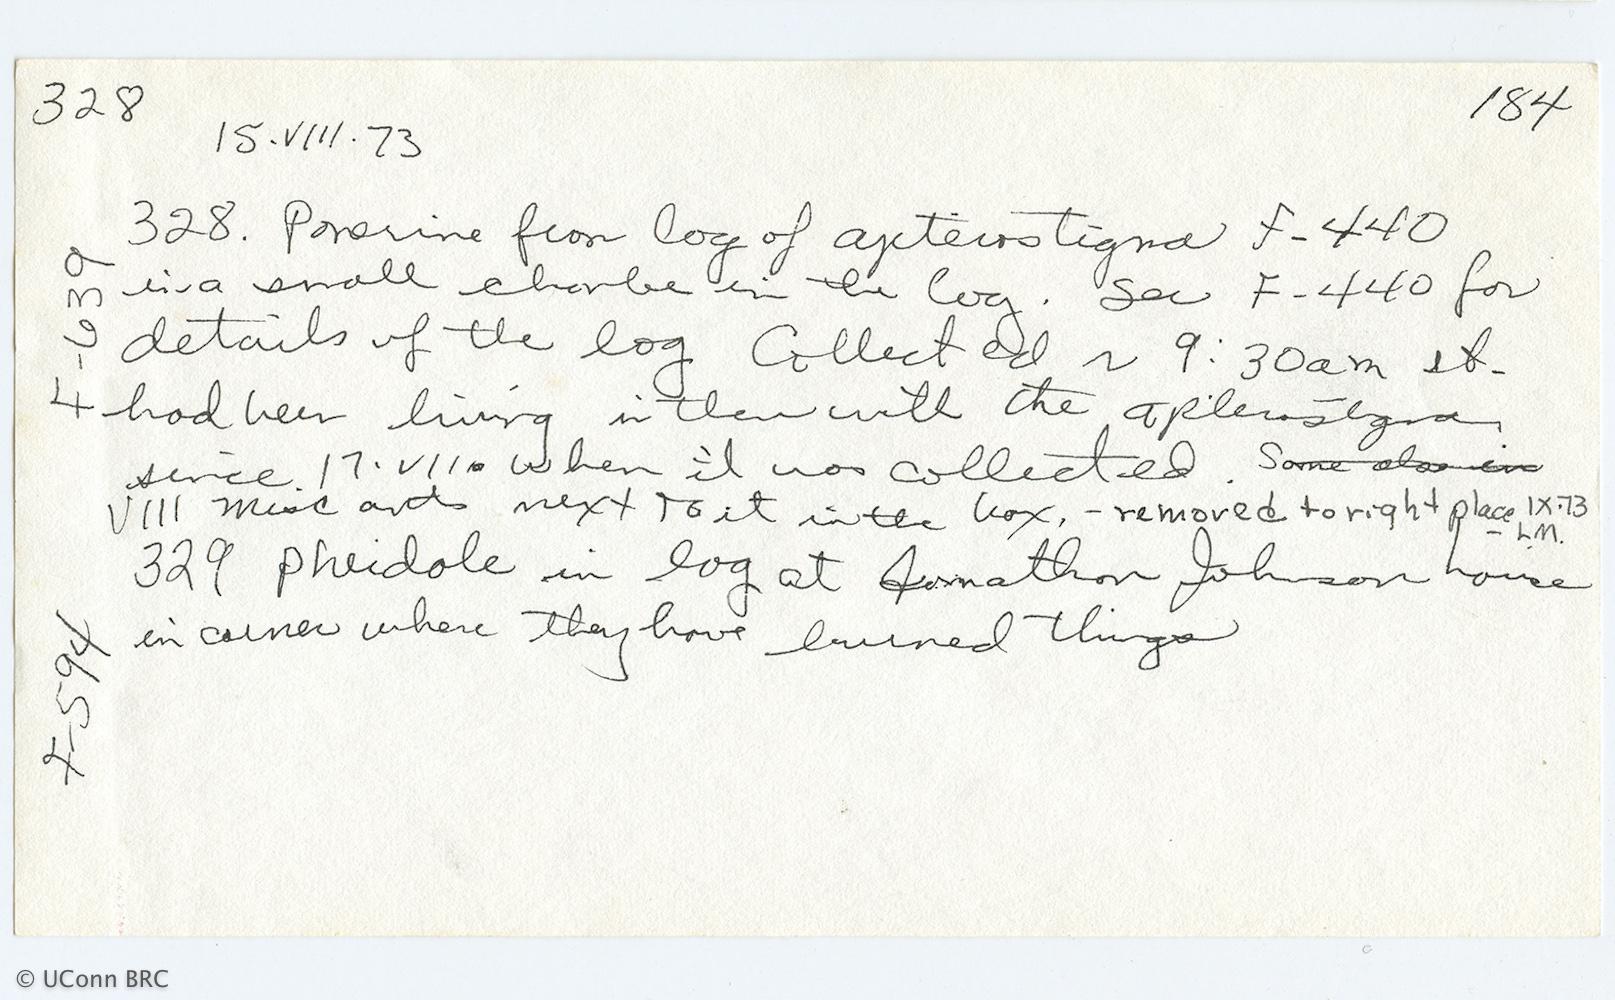 328
184
15.VIII.73
328. Ponerine from log of apterostigma F-440
in a small chambe in the log. See F-440 for
details of the log Collected ~ 9:30am it
had been living in there with the apterostigma
since 17.VII. when it was collected. Some also in
VIII Misc ants next to it in the box. - removed to right place IX.73
- L.M.
329 pheidole in log at Jonathon Johnson house
in corner where they have burned things
F-639
F-594
© UConn BRC